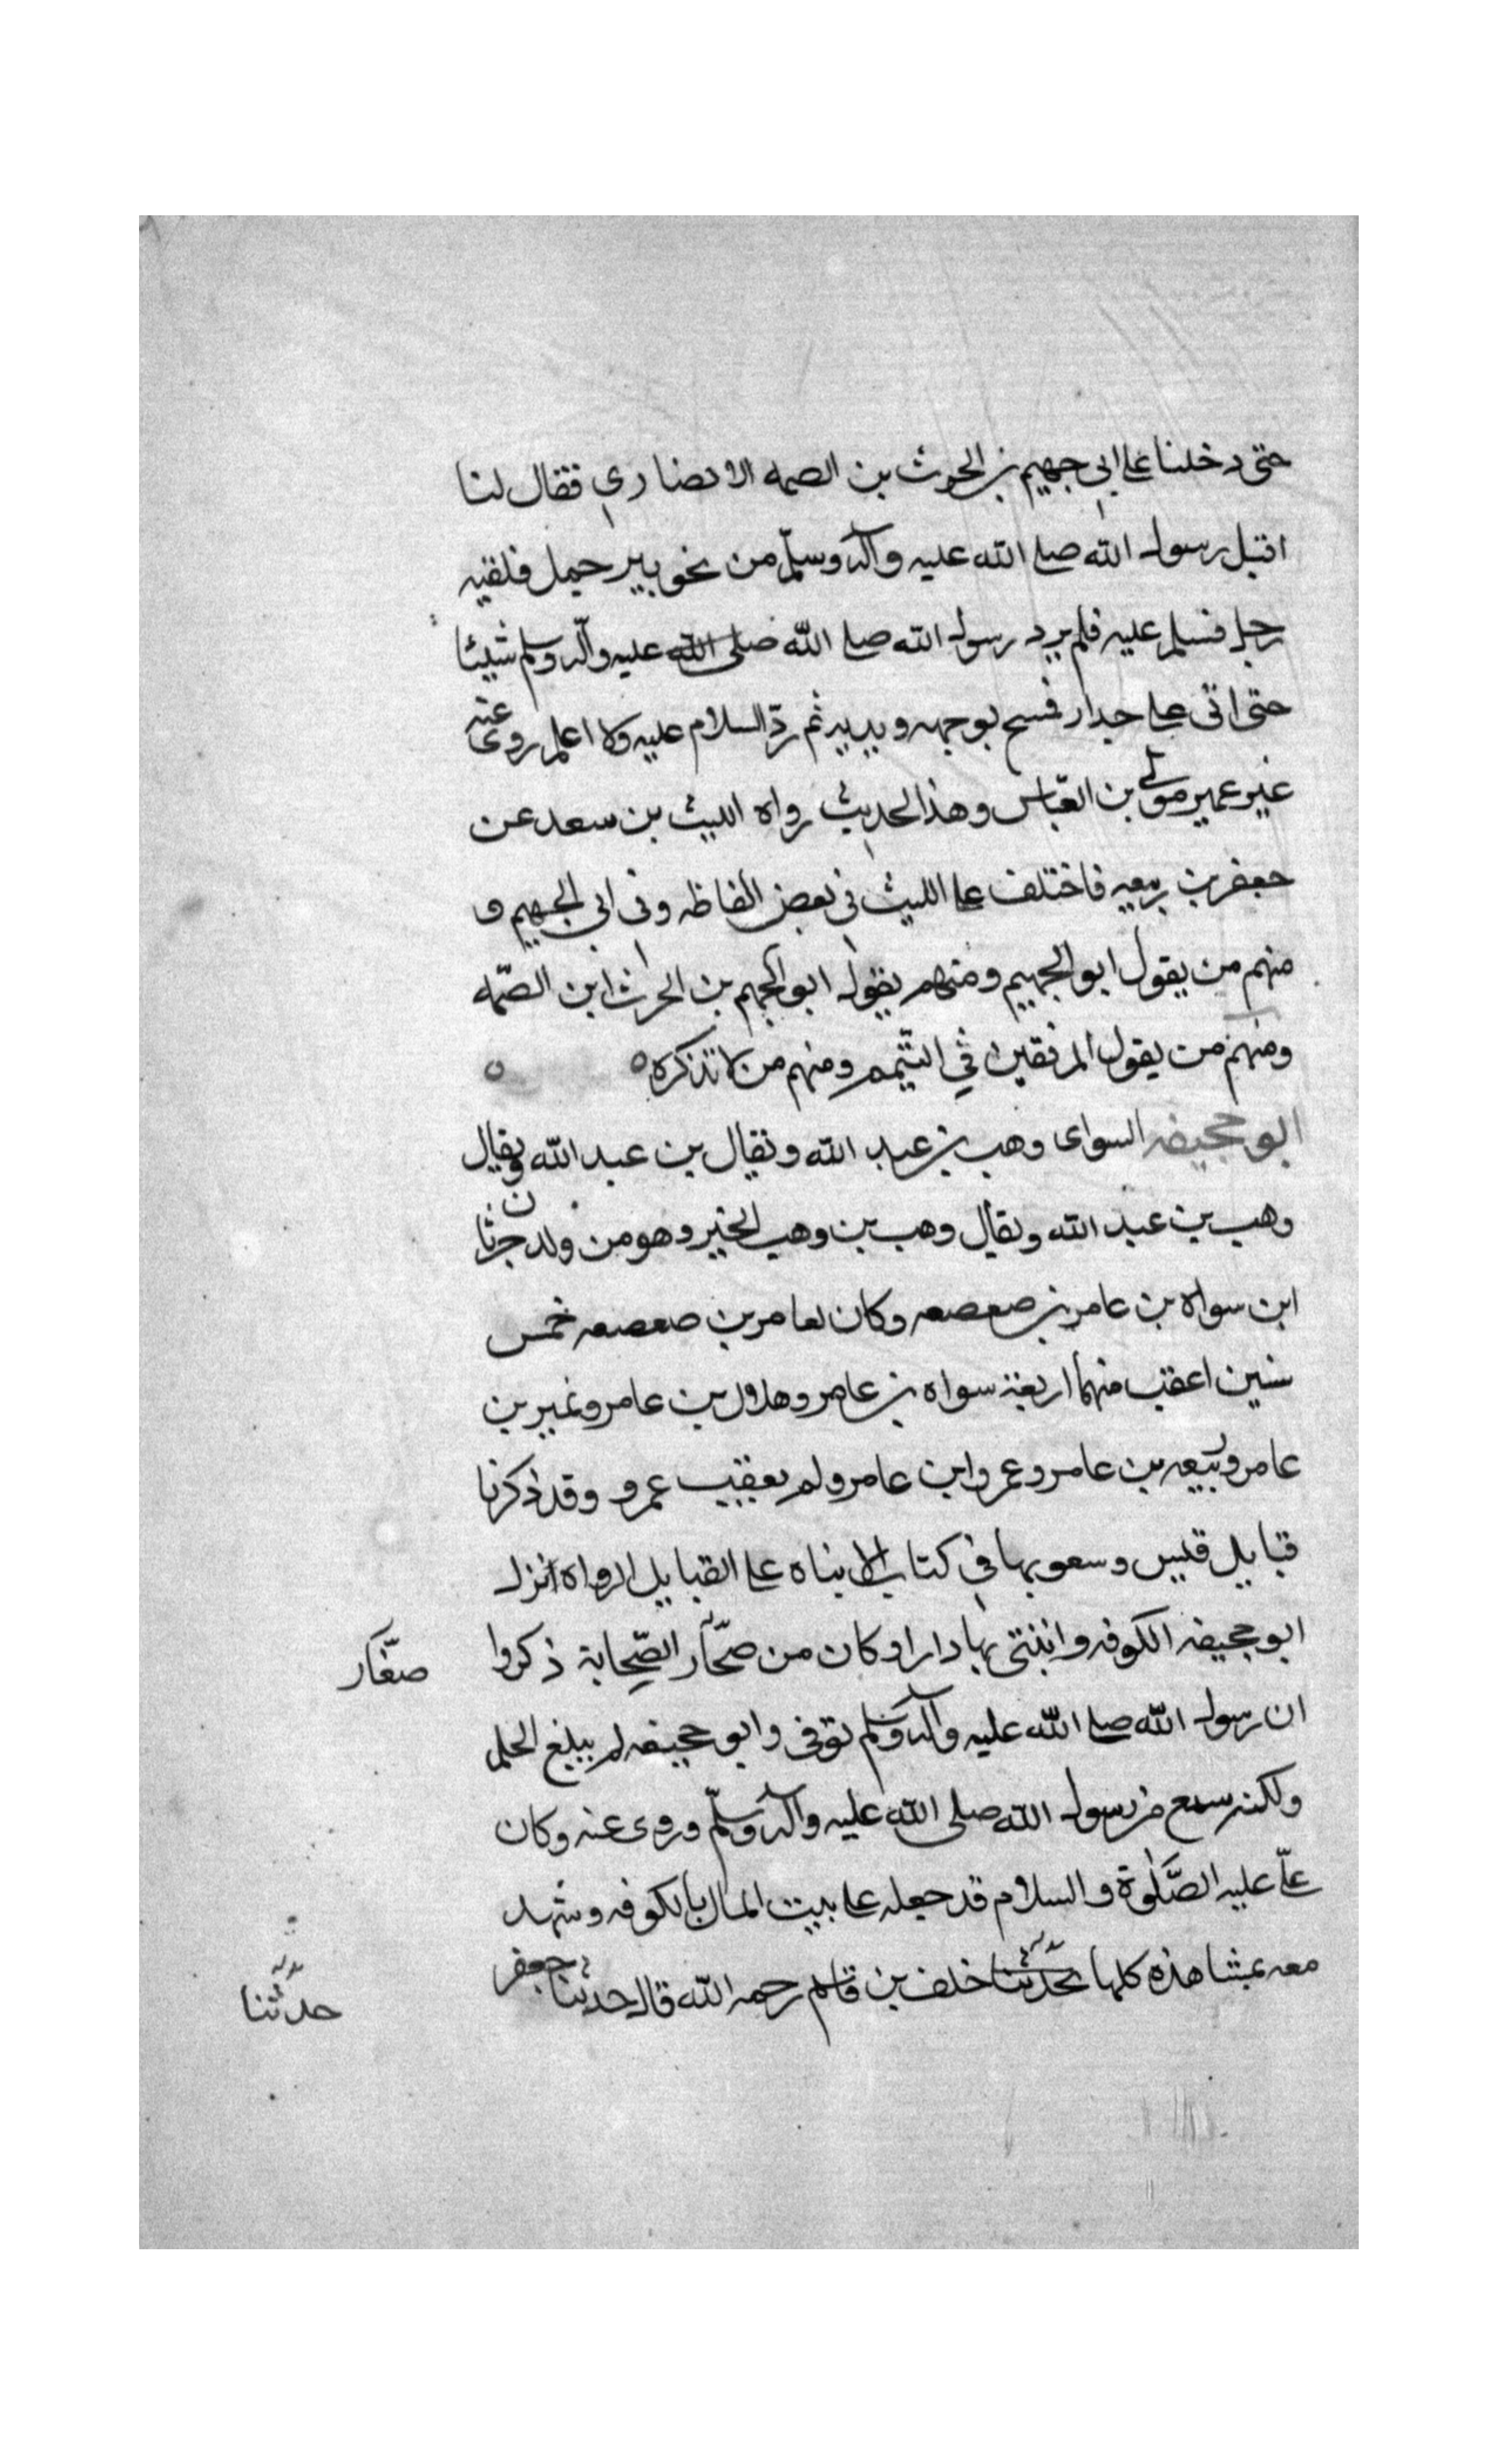 حتى دخلنا على ابي جهيم بن الحرث بن الصمه الانصاري فقال لنا
اقبل رسول الله صلى الله عليه وآله وسلّم من نحو بير جمل فلقيه
رجل فسلم عليه فلم يرد رسول الله صلى الله صلى الله عليه وآله وسلم شيئا
حتى اتى على جدار فمسح بوجهه ويديه ثم ردّ السلام عليه ولا اعلم روى عنه
غير عمير مولى بن العبّاس وهذا الحديث رواه الليث بن سعد عن
جعفر بن ربيعه فاختلف على الليث في بعض الفاظه وفي ابي الجهيم و
منهم من يقول ابو الجهيم ومنهم يقول ابو الجهم بن الحرث ابن الصمّه
ومنهم من يقول المرفقين في التيّمم ومنهم من لا تذكره
ابو جحيفه السواى وهب بن عبد الله ويقال بن عبد الله ويقال
وهب بن عبد الله ويقال وهب بن وهب الخير وهو من ولد جرثان
ابن سواه بن عامر بن صعصعه وكان لعامر بن صعصعه خمس
سنين اعقب منهما اربعة سواه بن عامر وهلال بن عامر ونمير بن
عامر وربيعه بن عامر وعمرو ابن عامر ولم يعقب عمرو وقد ذكرنا
قبايل قيس وسعوبها في كتاب الابناه على القبايل الرواه انزل
ابو جحيفه الكوفه وابتنى بها دارا وكان من صحّار الصّحابة ذكروا
صغّار
ان رسول الله صلى الله عليه وآله وسلم توفى وابو جحيفه لم يبلغ الحلم
ولكنه سمع من رسول الله صلى الله عليه وآله وسلّم وروى عنه وكان
علىّ عليه الصّلوة والسلام قد جعله على بيت المال بالكوفه وشهد
معه مشاهده كلها حدّثنا خلف بن قاسم رحمه الله قال حدثنا جعفر
حدّثنا